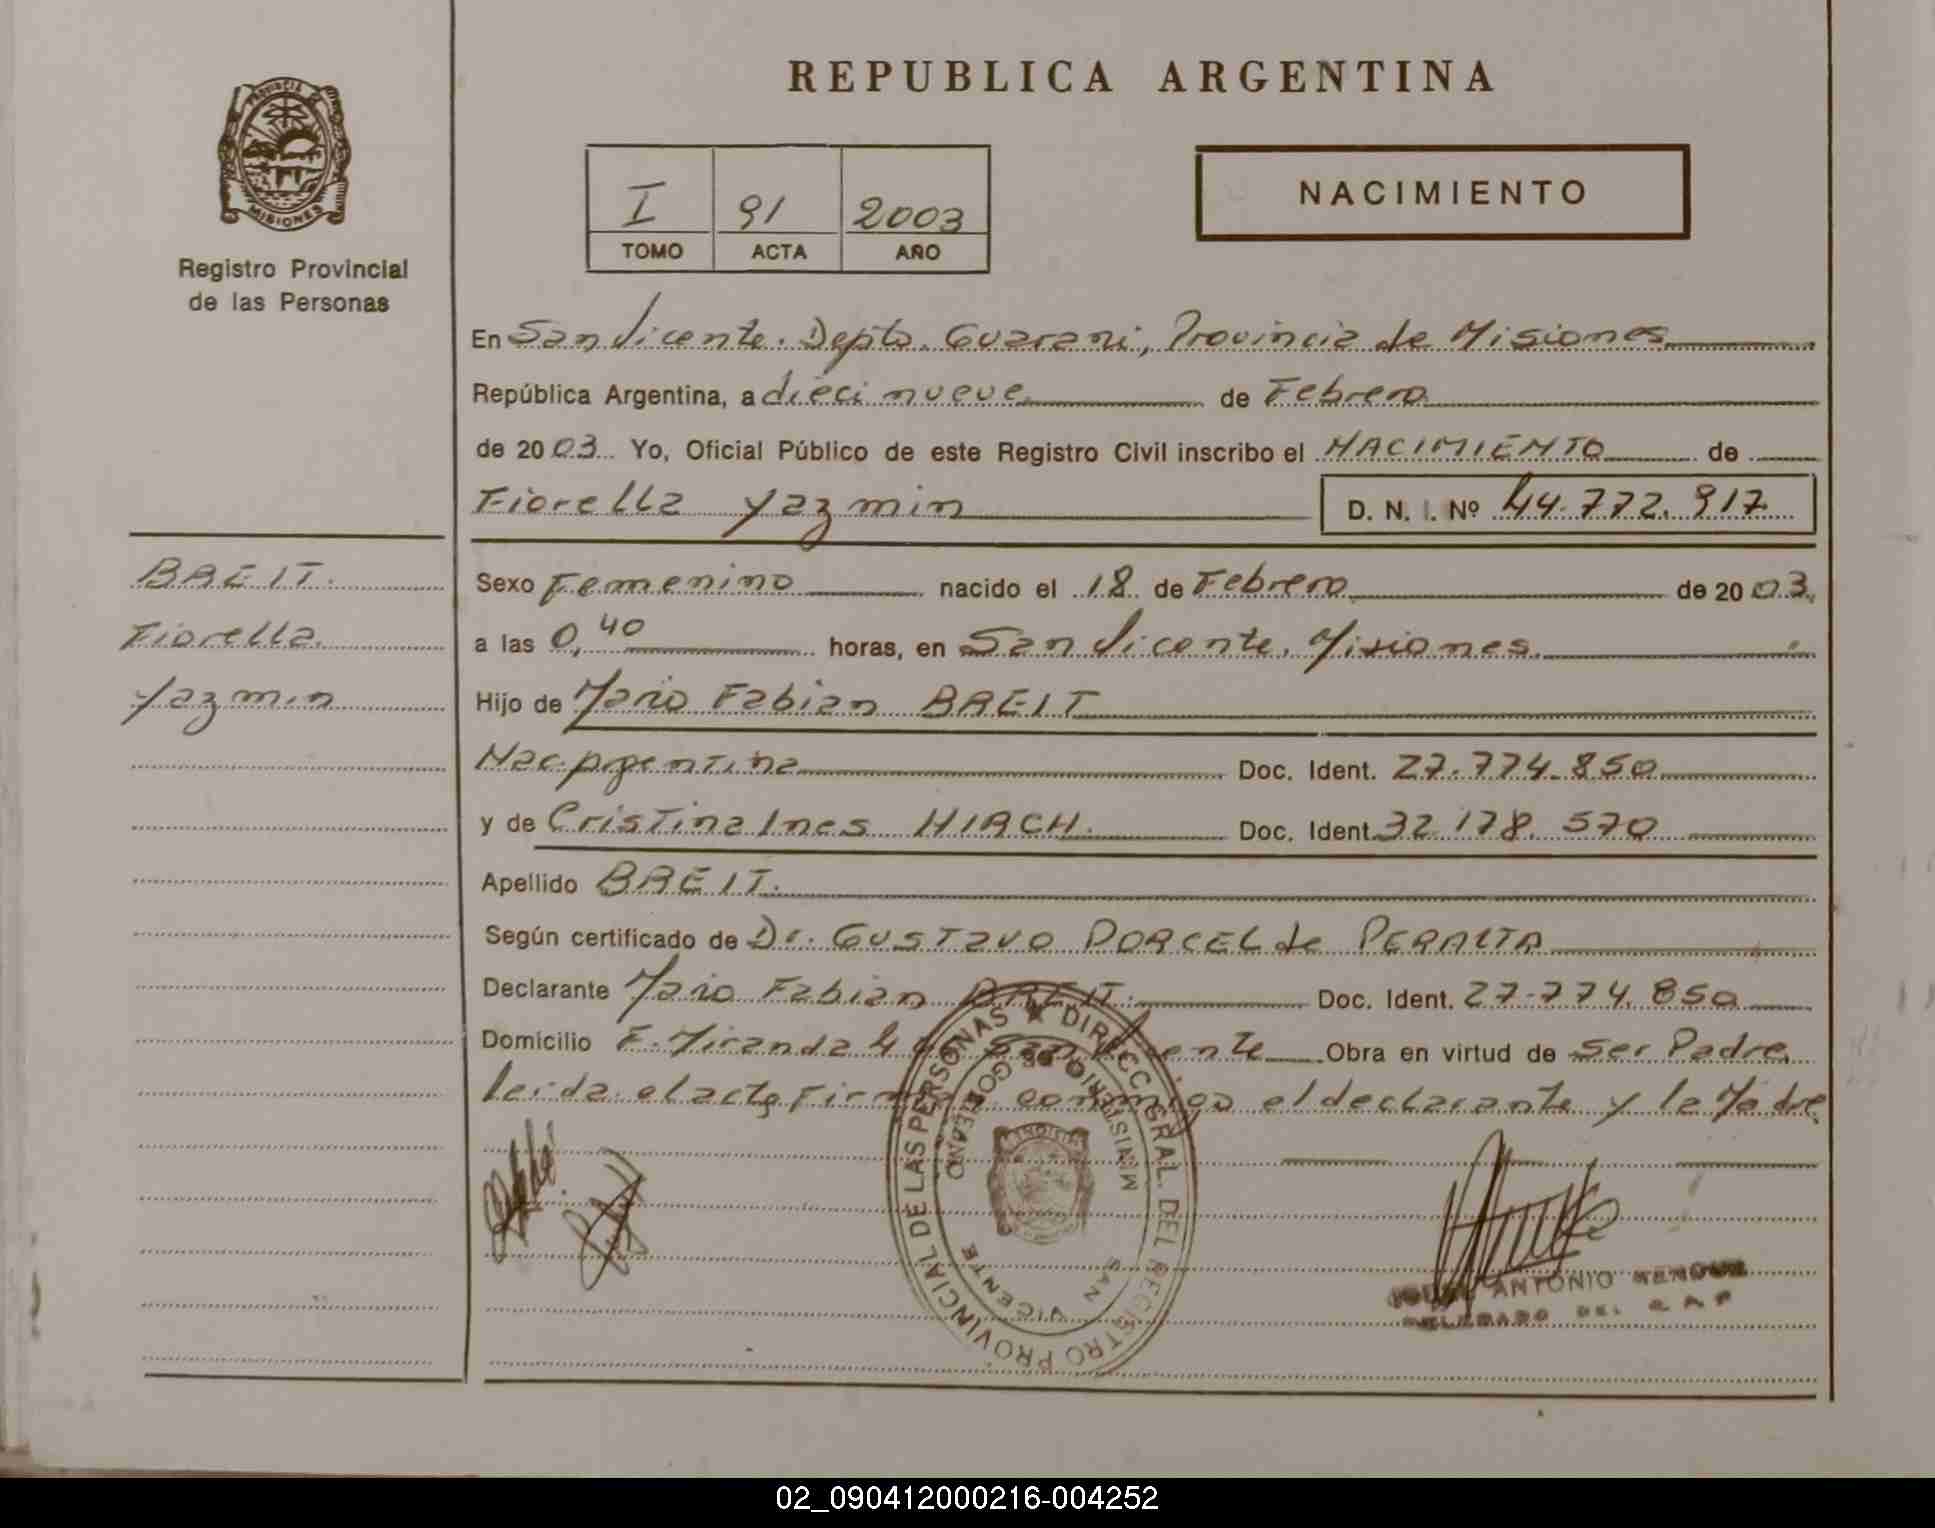 REPUBLICA ARGENTINA
PROVINCIA DE
MISIONES
Registro Provincial
de las Personas
I 91 2003
TOMO ACTA AÑO
NACIMIENTO
En San Vicente. Depto. Guarani, Provincia de Misiones
República Argentina, a dieci nueve de Febrero
de 2003 Yo, Oficial Público de este Registro Civil inscribo el NACIMIENTO de
Fiorella Yazmin D. N. I. Nº 44.772.917
BREIT.
Fiorella
Yazmin
Sexo Femenino nacido el 18 de Febrero de 2003.
a las 0,40 horas, en San Vicente. Misiones.
Hijo de Mario Fabian BREIT
Nac. Argentina Doc. Ident. 27.774.850
y de Cristina Ines HIRCH. Doc. Ident. 32.178.570
Apellido BREIT.
Según certificado de Dr. GUSTAVO PORCEL de PERALTA
Declarante Mario Fabian BREIT. Doc. Ident. 27.774.850
Domicilio F. Miranda San Vicente Obra en virtud de ser Padre.
leida el acta firman conmigo el declarante y la Madre.
DIRECC. GRAL. DEL REGISTRO PROVINCIAL DE LAS PERSONAS
MINISTERIO DE GOBIERNO
SAN VICENTE
ANTONIO
02_090412000216-004252